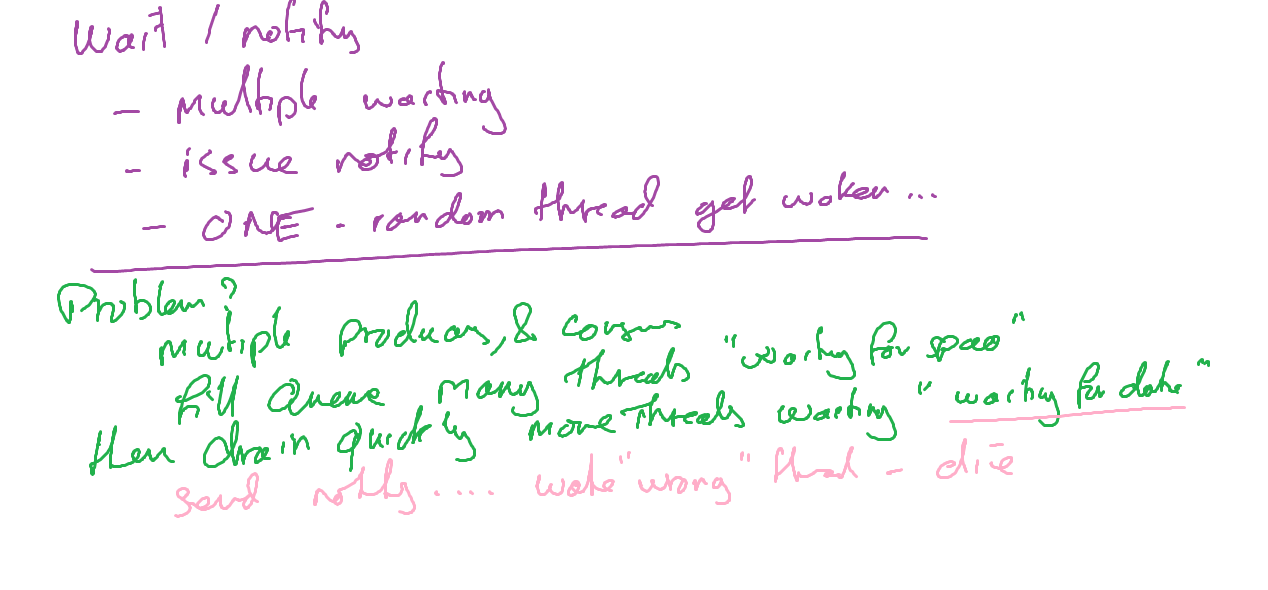 Wait / notify
- multiple waiting
- issue notify
- ONE - random thread get woken...
Problem?
multiple producers, & consums "waiting for space"
fill Queue many threads
then drain quickly more Threads waiting "waiting for data"
send notify.... wake "wrong" thread - die